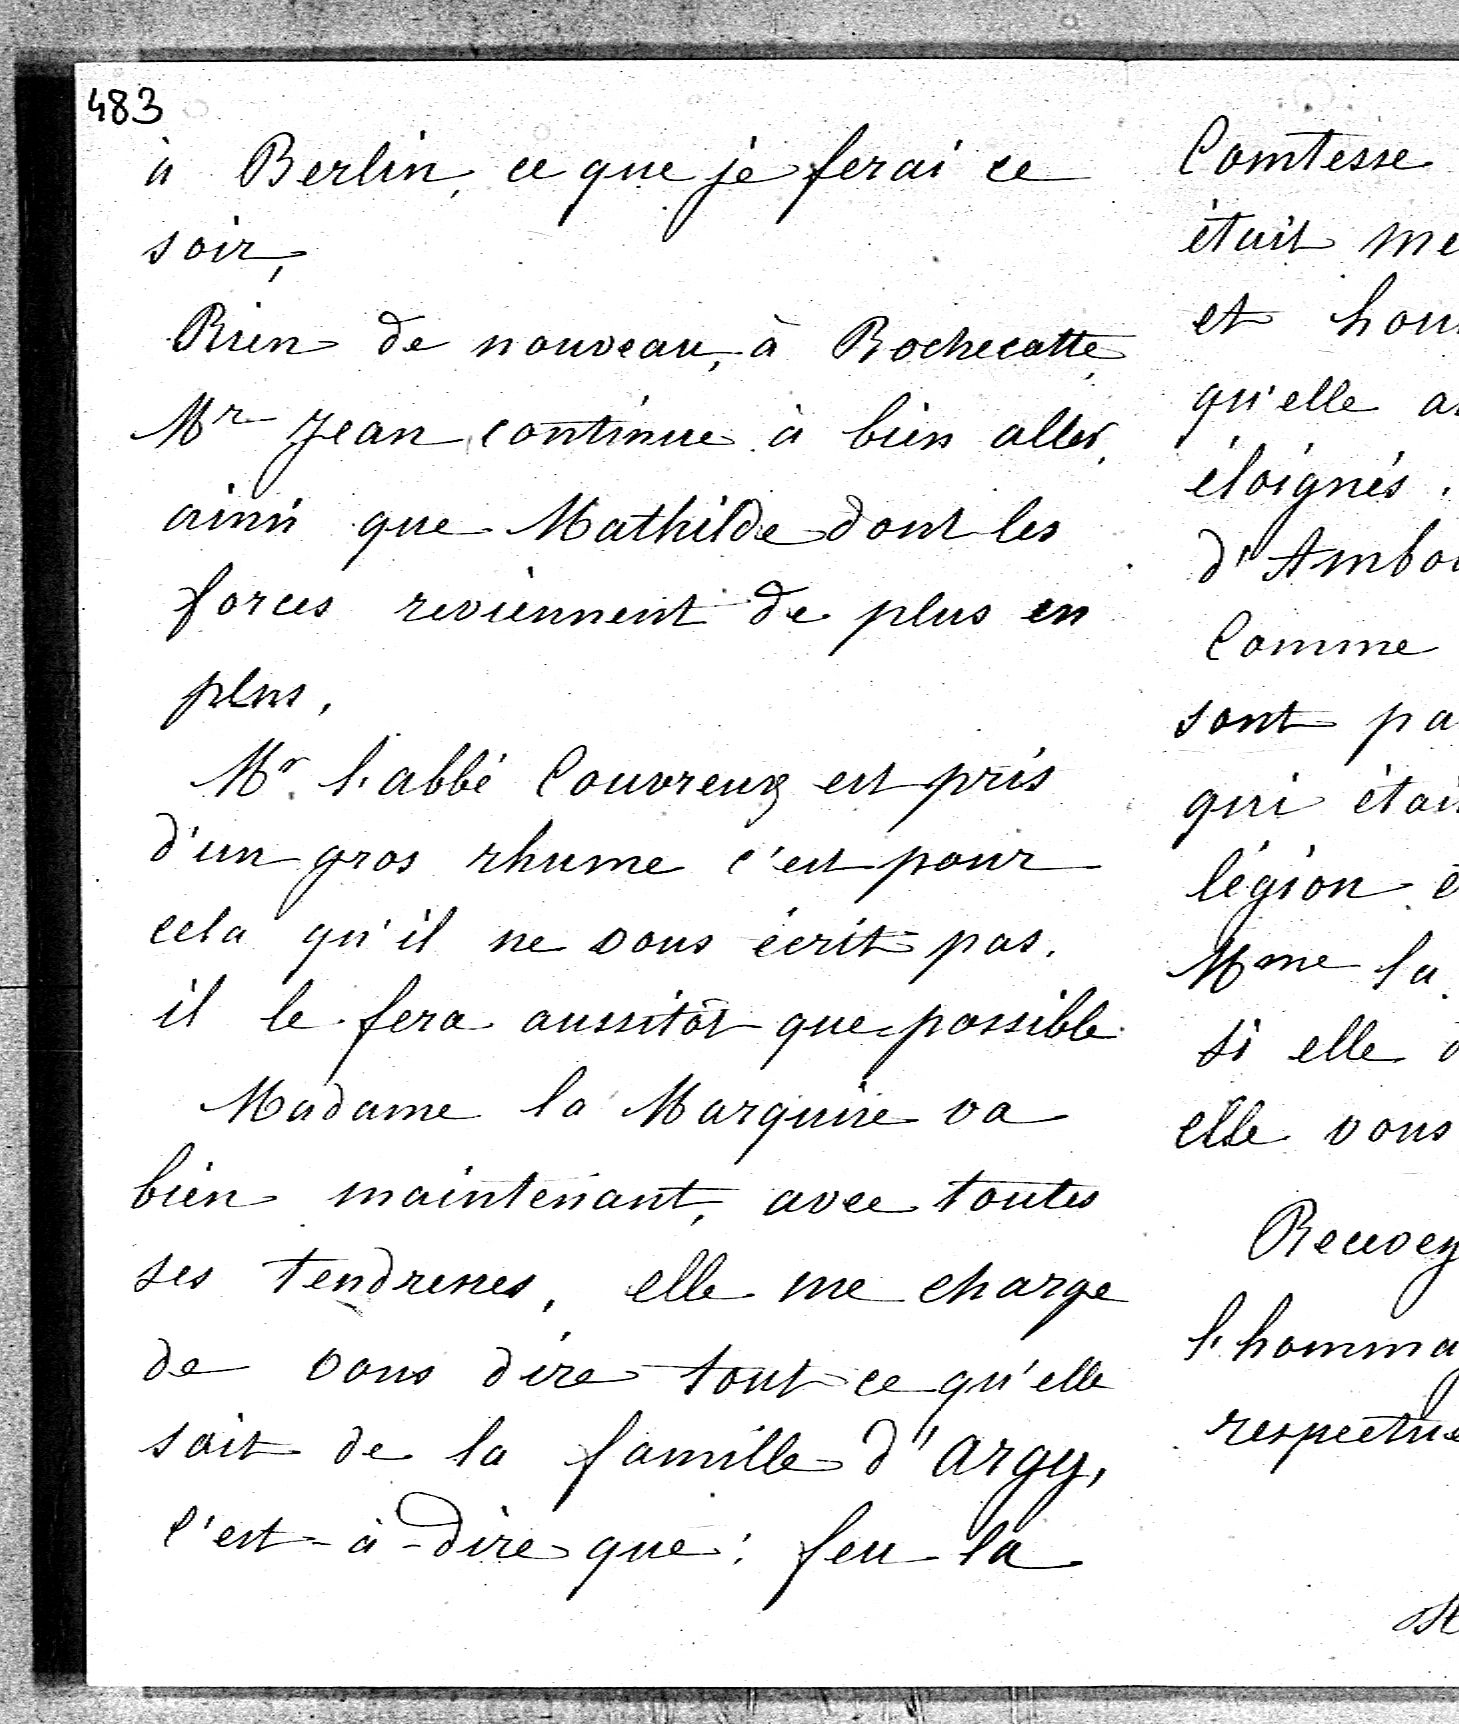 483
à Berlin, ce que je ferai ce
soir,
Rien de nouveau, à Rochecotte,
Mr Jean continue à bien aller,
ainsi que Mathilde dont les
forces reviennent de plus en
plus,
Mr l'abbé Couvreux est pris
d'un gros rhume c'est pour
cela qu'il ne vous écrit pas.
il le fera aussitôt que possible
Madame la Marquise va
bien maintenant, avec toutes
ses tendresses, elle me charge
de vous dire tout ce qu'elle
sait de la famille d'Argy,
c'est-à-dire que: feu la
Comtesse
était
et
qu'elle
éloignés,
d'Amboi
Comme
sont pa
qui étai
légion
Mme la
si elle
elle vous
Recevez
l'homma
respectue